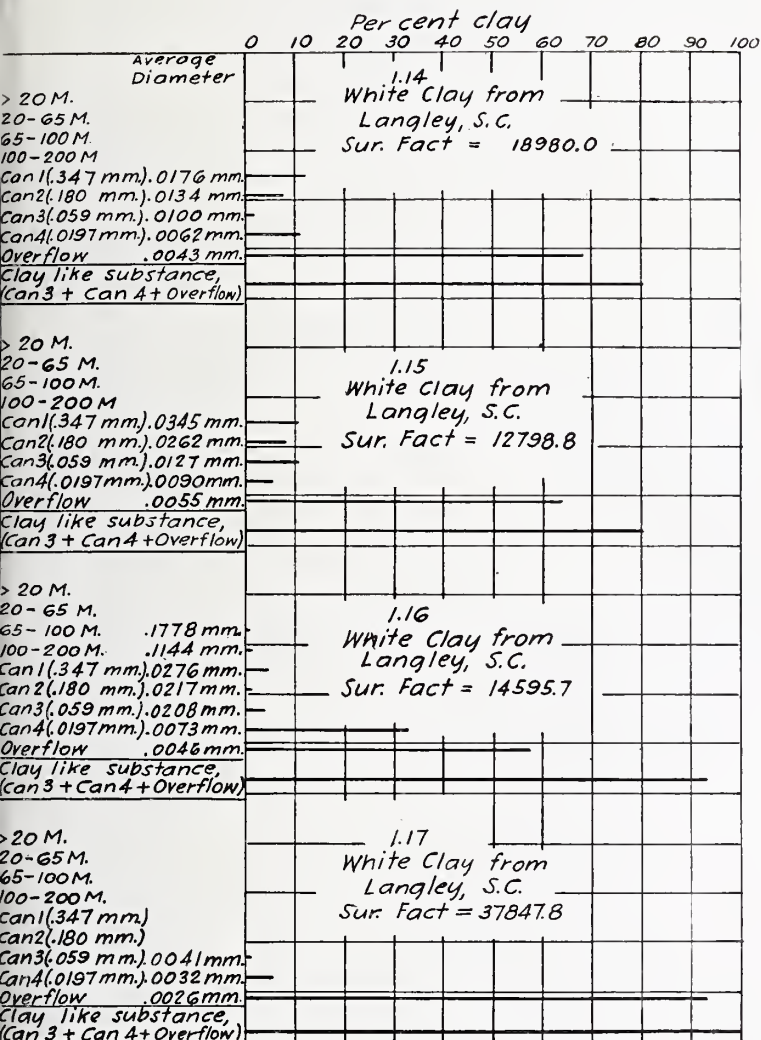 Per cent clay
0 10 20 30 40 50 60 70 80 90 100
Average
Diameter
> 20 M.
20-65 M.
65-100 M.
100-200 M
Can 1(.347 mm.).0176 mm.
Can2(.180 mm.).0134 mm.
Can3(.059 mm.).0100 mm.
Can4(.0197mm.).0062mm.
Overflow .0043 mm.
Clay like substance,
(Can 3 + Can 4 + Overflow)
1.14
White Clay from
Langley, S.C.
Sur. Fact = 18980.0
> 20 M.
20-65 M.
65-100 M.
100-200 M
Can1(.347 mm.).0345 mm.
Can2(.180 mm.).0262 mm.
Can3(.059 mm.).0127 mm.
Can4(.0197mm.).0090mm.
Overflow .0055 mm.
Clay like substance,
(Can 3 + Can 4 + Overflow)
1.15
White Clay from
Langley, S.C.
Sur. Fact = 12798.8
> 20 M.
20-65 M.
65-100 M. .1778 mm.
100-200 M. .1144 mm.
Can 1(.347 mm.).0276 mm.
Can 2(.180 mm.).0217mm.
Can3(.059 mm.).0208 mm.
Can4(.0197mm.).0073 mm.
Overflow .0046mm.
Clay like substance,
(Can 3 + Can 4 + Overflow)
1.16
White Clay from
Langley, S.C.
Sur. Fact = 14595.7
>20 M.
20-65M.
65-100M.
100-200 M.
Can1(.347 mm.)
Can2(.180 mm.)
Can3(.059 mm.).0041mm.
Can4(.0197 mm.).0032 mm.
Overflow .0026mm.
Clay like substance,
(Can 3 + Can 4 + Overflow)
1.17
White Clay from
Langley, S.C.
Sur. Fact = 37847.8